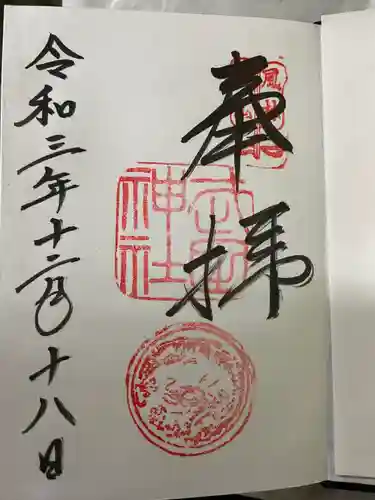 奉拝
神社
令和三年十二月十八日